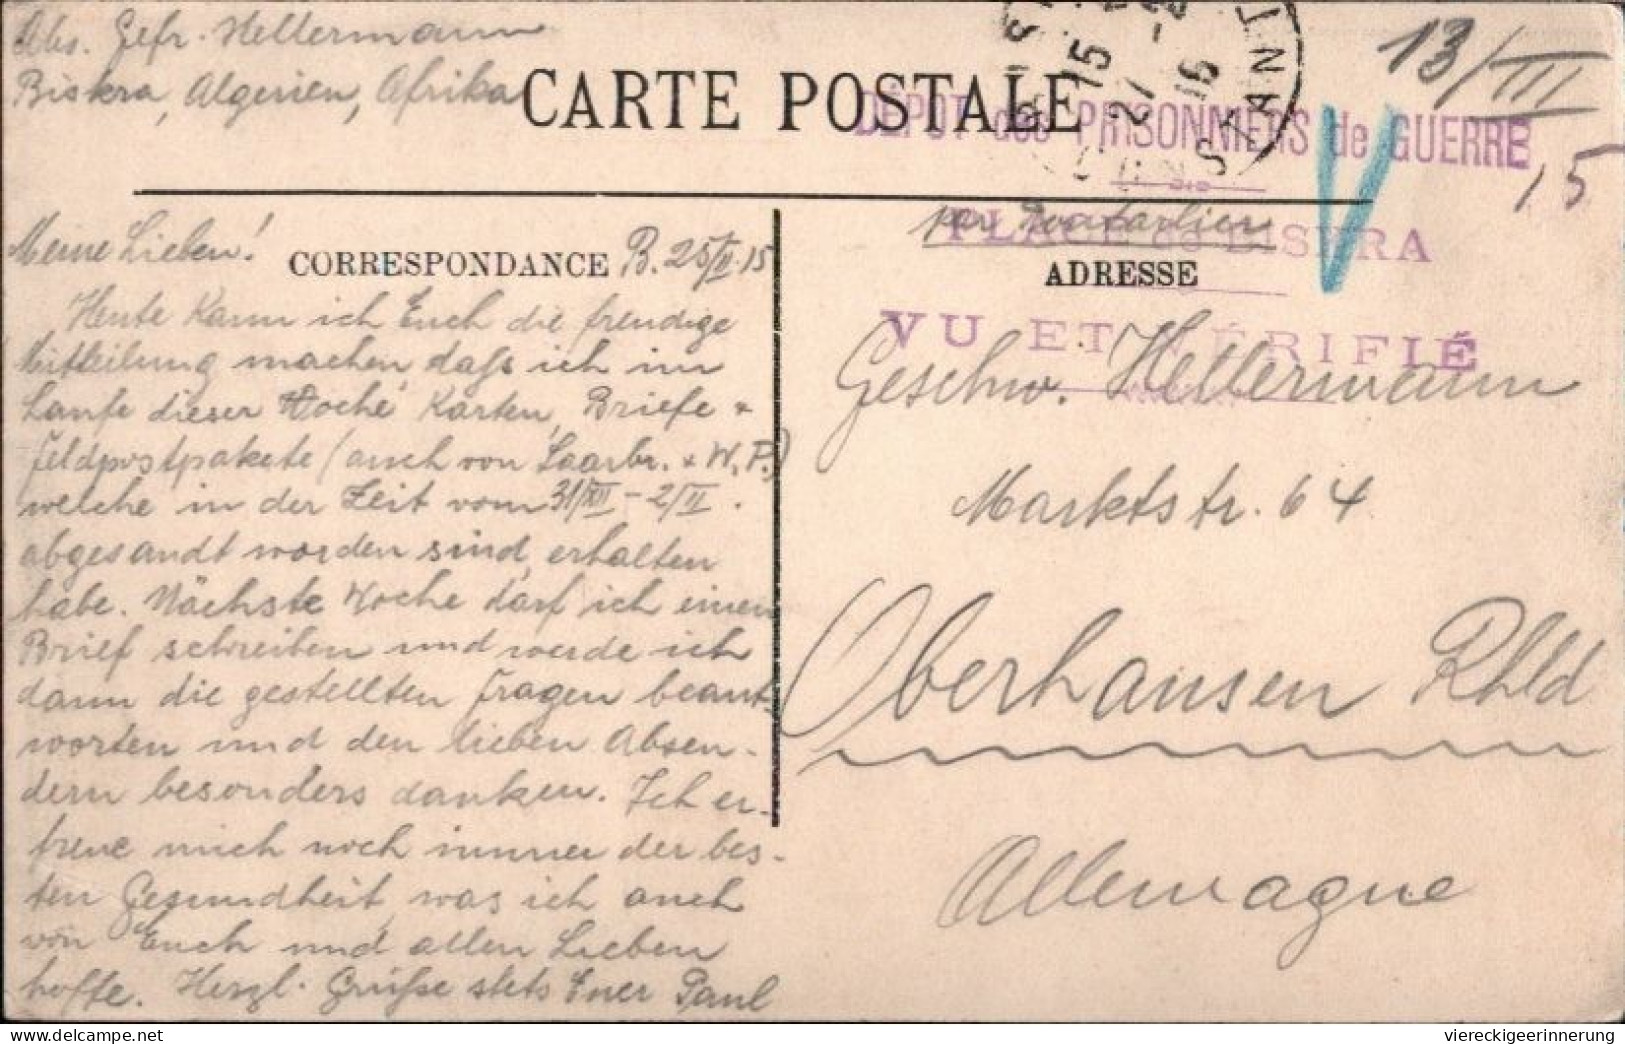 Abs. Gefr. Hellermann
Biskra, Algerien, Afrika
CARTE POSTALE
DÉPOT des PRISONNIERS de GUERRE
PLACE de BISKRA
VU ET VÉRIFIÉ
15
27 -2
15
13/III
15
Meine Lieben!
CORRESPONDANCE
B. 25/II.15
Heute kann ich Euch die freudige
Mitteilung machen daß ich im
Laufe dieser Woche Karten, Briefe +
Feldpostpakete (auch von Saarbr. + W. P.)
welche in der Zeit vom 31/XII – 2/II.
abgesandt worden sind, erhalten
habe. Nächste Woche darf ich einen
Brief schreiben und werde ich
dann die gestellten Fragen beant-
worten und den lieben Absen-
dern besonders danken. Ich er-
freue mich noch immer der bes-
ten Gesundheit, was ich auch
von Euch und allen Lieben
hoffe. Herzl. Grüße stets Euer Paul
per Pontarlier
ADRESSE
Geschw. Hellermann
Marktstr. 64
Oberhausen Rhld
Allemagne
viereckigeerinnerung